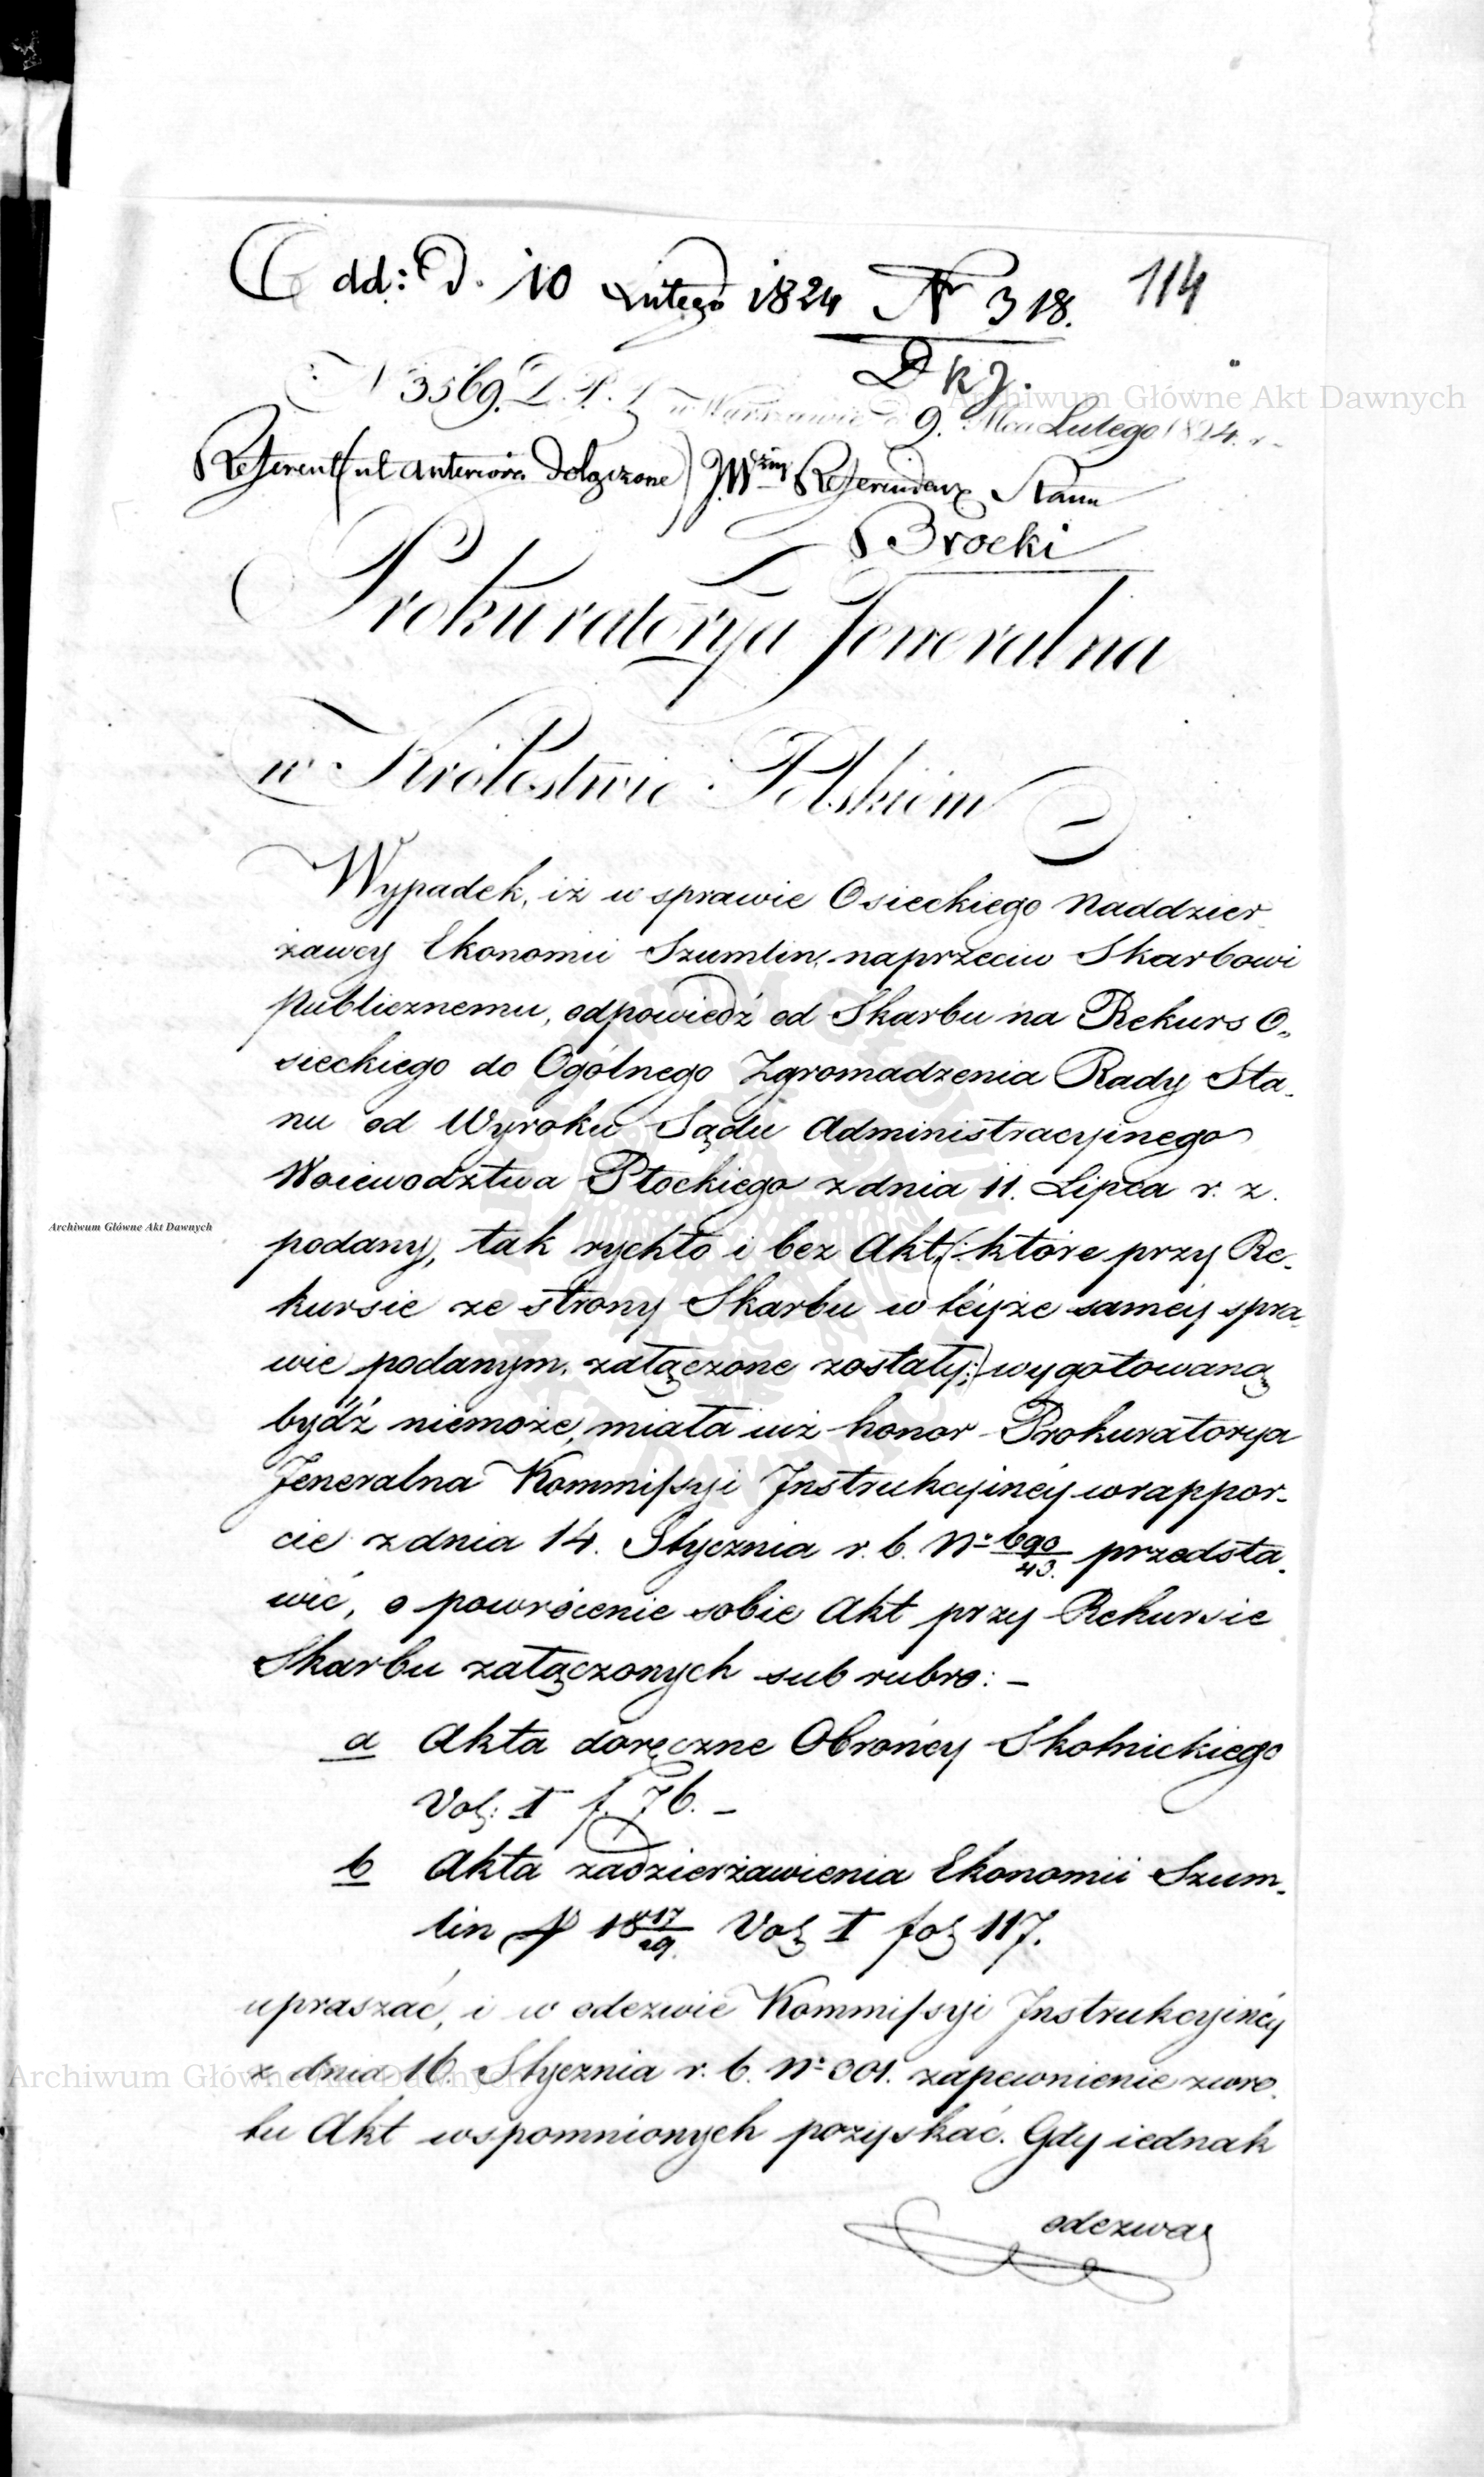 Odd: D. 10 Lutego 1824 Nr 318. 114
D k J.
N 3569. D. P. J. w Warszawie d 9. Mca Lutego 1824. r.
Archiwum Główne Akt Dawnych
Referent (ut anteriora dołączone) JWżny Referendarz Stanu
Brocki
Prokuratorya Jeneralna
w Królestwie Polskiem
Wypadek, iż w sprawie Osieckiego Naddzier-
żawcy Ekonomii Szumlin, naprzeciw Skarbowi
Publicznemu, odpowiedź od Skarbu na Rekurs O-
sieckiego do Ogólnego Zgromadzenia Rady Sta-
nu od Wyroku Sądu Administracyinego
Woiewodztwa Płockiego z dnia 11. Lipca r. z.
Archiwum Główne Akt Dawnych
podany, tak rychło i bez Akt, (: które przy Re-
kursie ze strony Skarbu w téyże saméy spra-
wie podanym, załączone zostały :) wygotowaną
bydź niemoże, miała iuż honor Prokuratorya
Jeneralna Kommissyi Instrukcyinéy w rappor-
cie z dnia 14. Stycznia r. b. No 690/43. przedsta-
wić, o powrócenie sobie Akt przy Rekursie
Skarbu załączonych sub rubro: –
a Akta doręczne Obrońcy Skolnickiego
Vol: I f. 76. –
b Akta zadzierżawienia Ekonomii Szum-
lin p 1817/29. Vol I fol 117.
upraszać, i w odezwie Kommissyi Instrukcyinéy
z dnia 16. Stycznia r. b. No 301. zapewnienie zwro-
Archiwum Główne Akt Dawnych
tu Akt wspomnionych pozyskać. Gdy iednak
odezwa